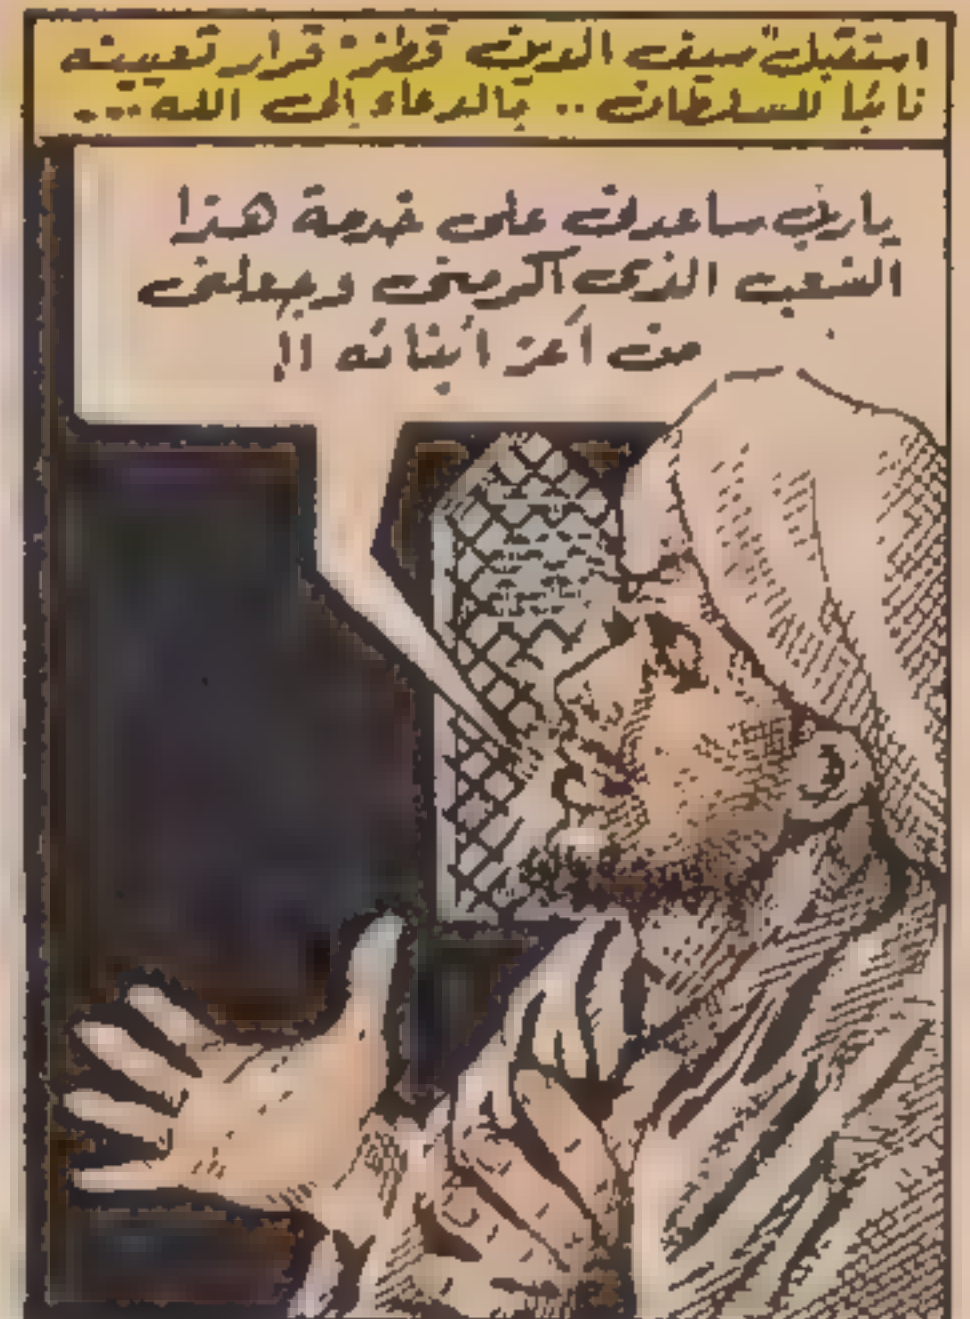 استقبل "سيف الدين قطز" قرار تعيينه
نائبًا للسلطان .. بالدعاء إلى الله ...
يارب ساعدنى على خدمة هذا
الشعب الذى أكرمنى وجعلنى
من أعز أبنائه !!